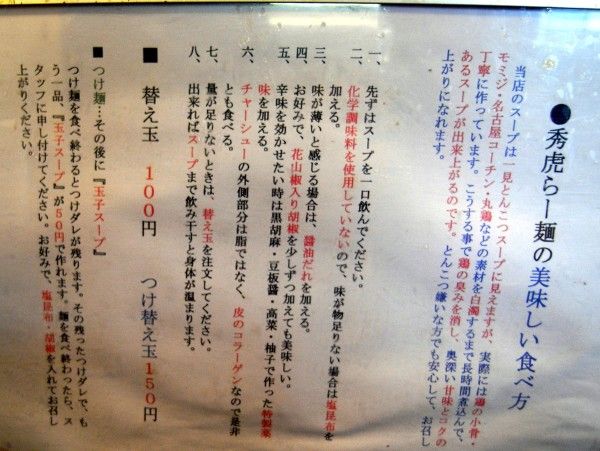 ●秀虎らー麺の美味しい食べ方
当店のスープは一見とんこつスープに見えますが、実際には鶏の小骨・
モミジ・名古屋コーチン・丸鶏などの素材を白濁するまで長時間煮込んで、
丁寧に作っています。こうする事で鶏の臭みを消し、奥深い甘味とコクの
あるスープが出来上がるのです。とんこつ嫌いな方でも安心して、お召し
上がりになれます。
一、先ずはスープを一口飲んでください。
二、化学調味料を使用していないので、味が物足りない場合は塩昆布を
加える。
三、味が薄いと感じる場合は、醤油だれを加える。
四、お好みで、花山椒入り胡椒を少しずつ加えても美味しい。
五、辛味を効かせたい時は黒胡麻・豆板醤・高菜・柚子で作った特製薬
味を加える。
六、チャーシューの外側部分は脂ではなく、皮のコラーゲンなので是非
とも食べる。
七、量が足りないときは、替え玉を注文してください。
八、出来ればスープまで飲み干すと身体が温まります。
■ 替え玉 100円 つけ替え玉150円
■ つけ麺…その後に『玉子スープ』
つけ麺を食べ終わるとつけダレが残ります。その残ったつけダレで、も
う一品、『玉子スープ』が50円で作れます。麺を食べ終わったら、ス
タッフに申し付けてください。お好みで、塩昆布・胡椒を入れてお召し
上がりください。